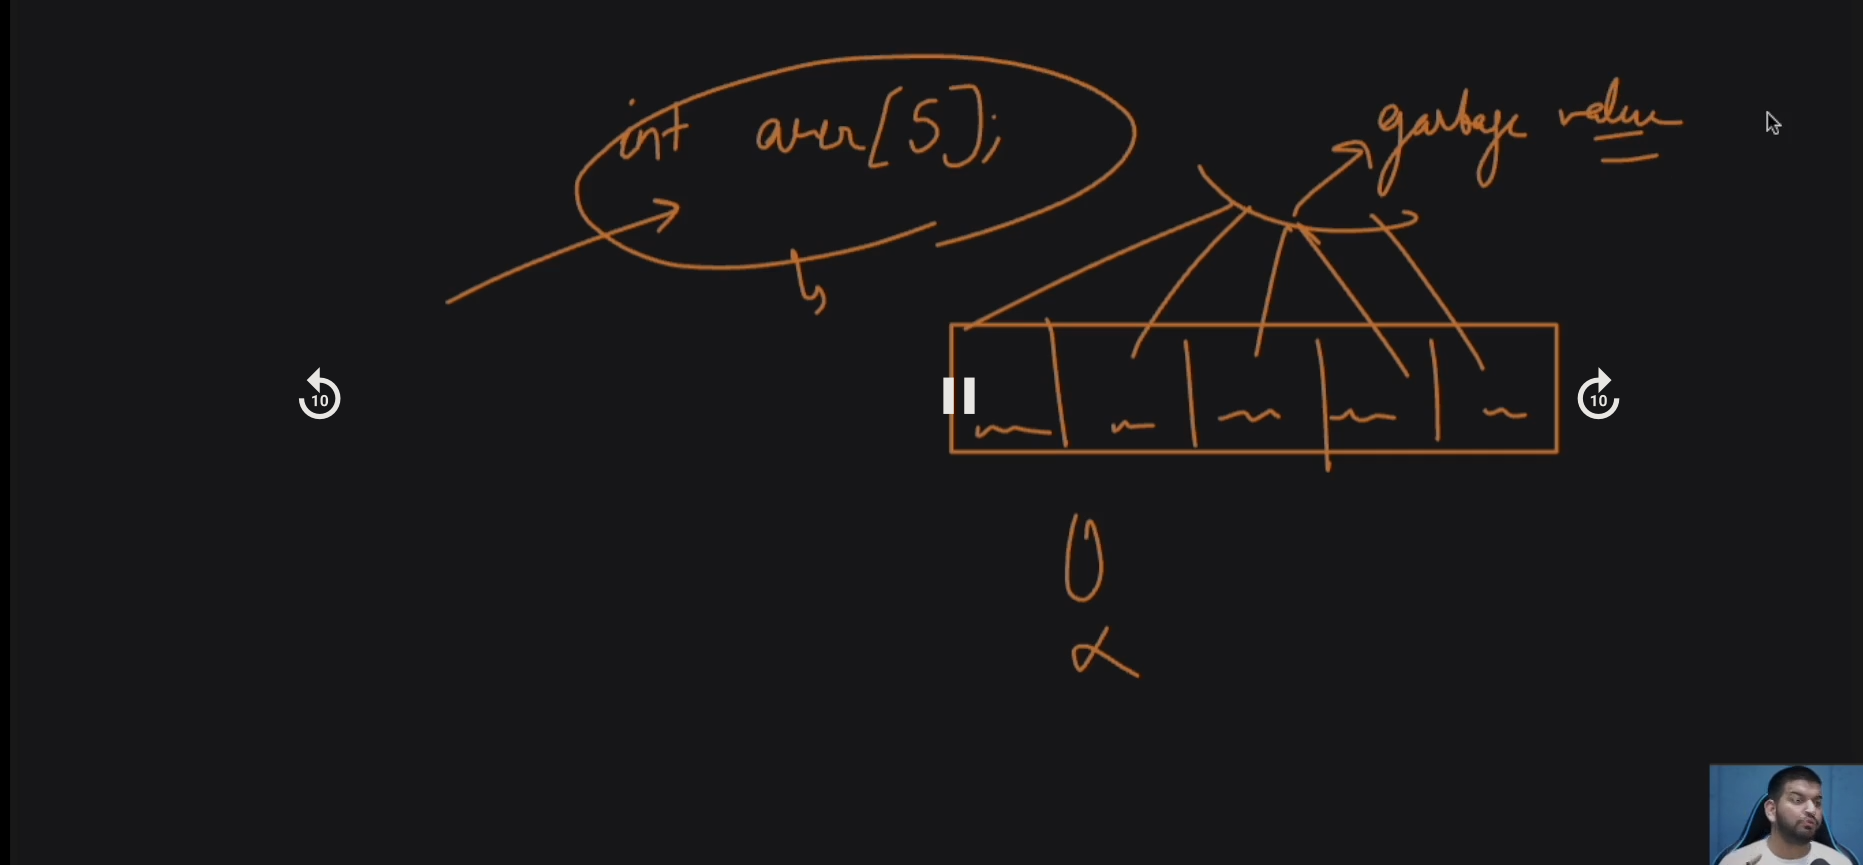 int arr[5];
garbage value
10
10
0